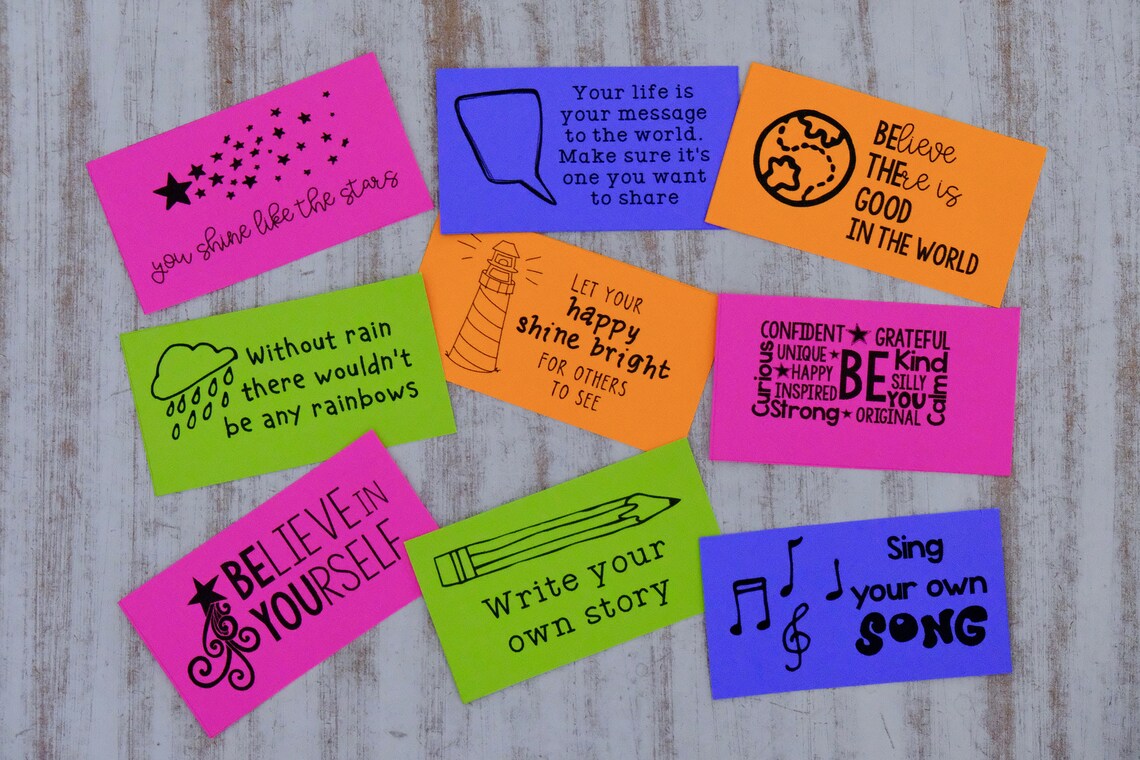 you shine like the stars
Your life is
your message
to the world.
Make sure it's
one you want
to share
BElieve
THEre is
GOOD
IN THE WORLD
Without rain
there wouldn't
be any rainbows
LET YOUR
happy
shine bright
FOR OTHERS
TO SEE
CONFIDENT GRATEFUL
Curious
UNIQUE
HAPPY
INSPIRED
BE
Kind
SILLY
YOU
Calm
Strong ORIGINAL
BELIEVE IN
YOURSELF
Write your
own story
Sing
your own
SONG